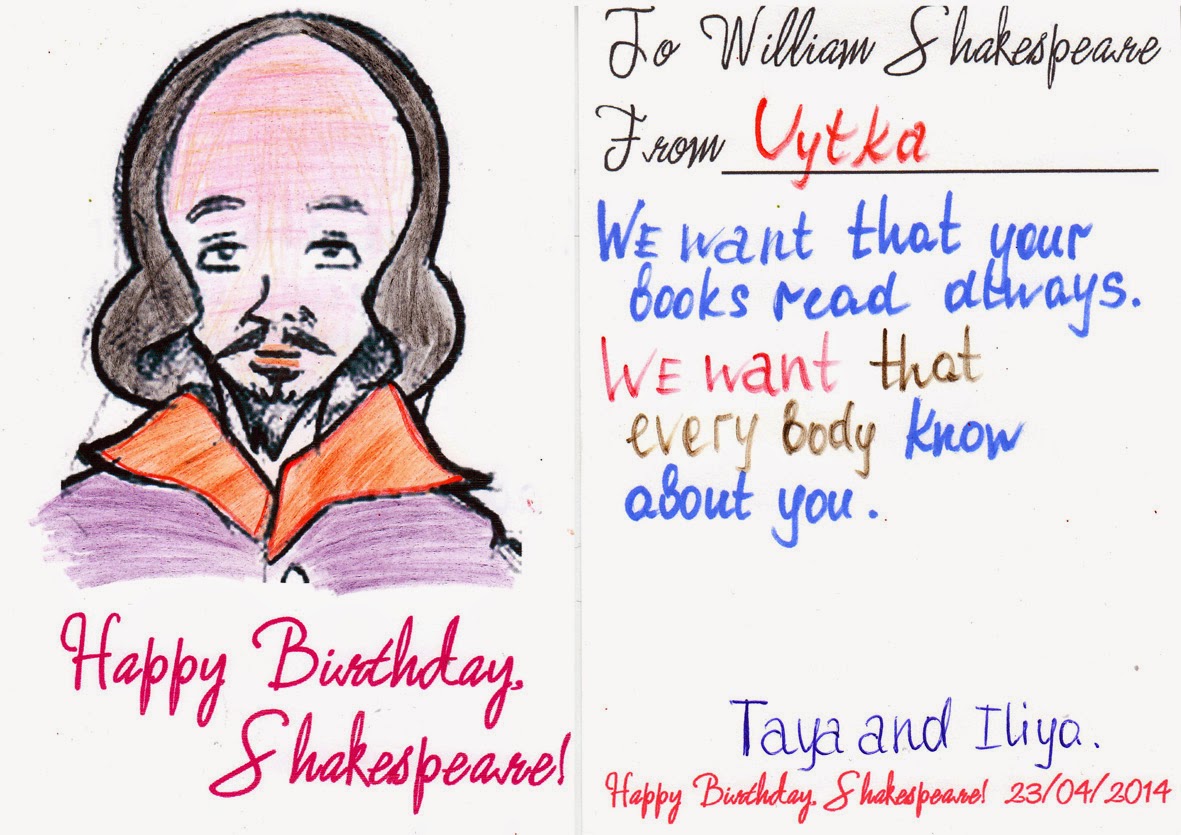 Happy Birthday,
Shakespeare!
To William Shakespeare
From Uytka
WE want that your
books read always.
WE want that
every body know
about you.
Taya and Iliya.
Happy Birthday, Shakespeare! 23/04/2014